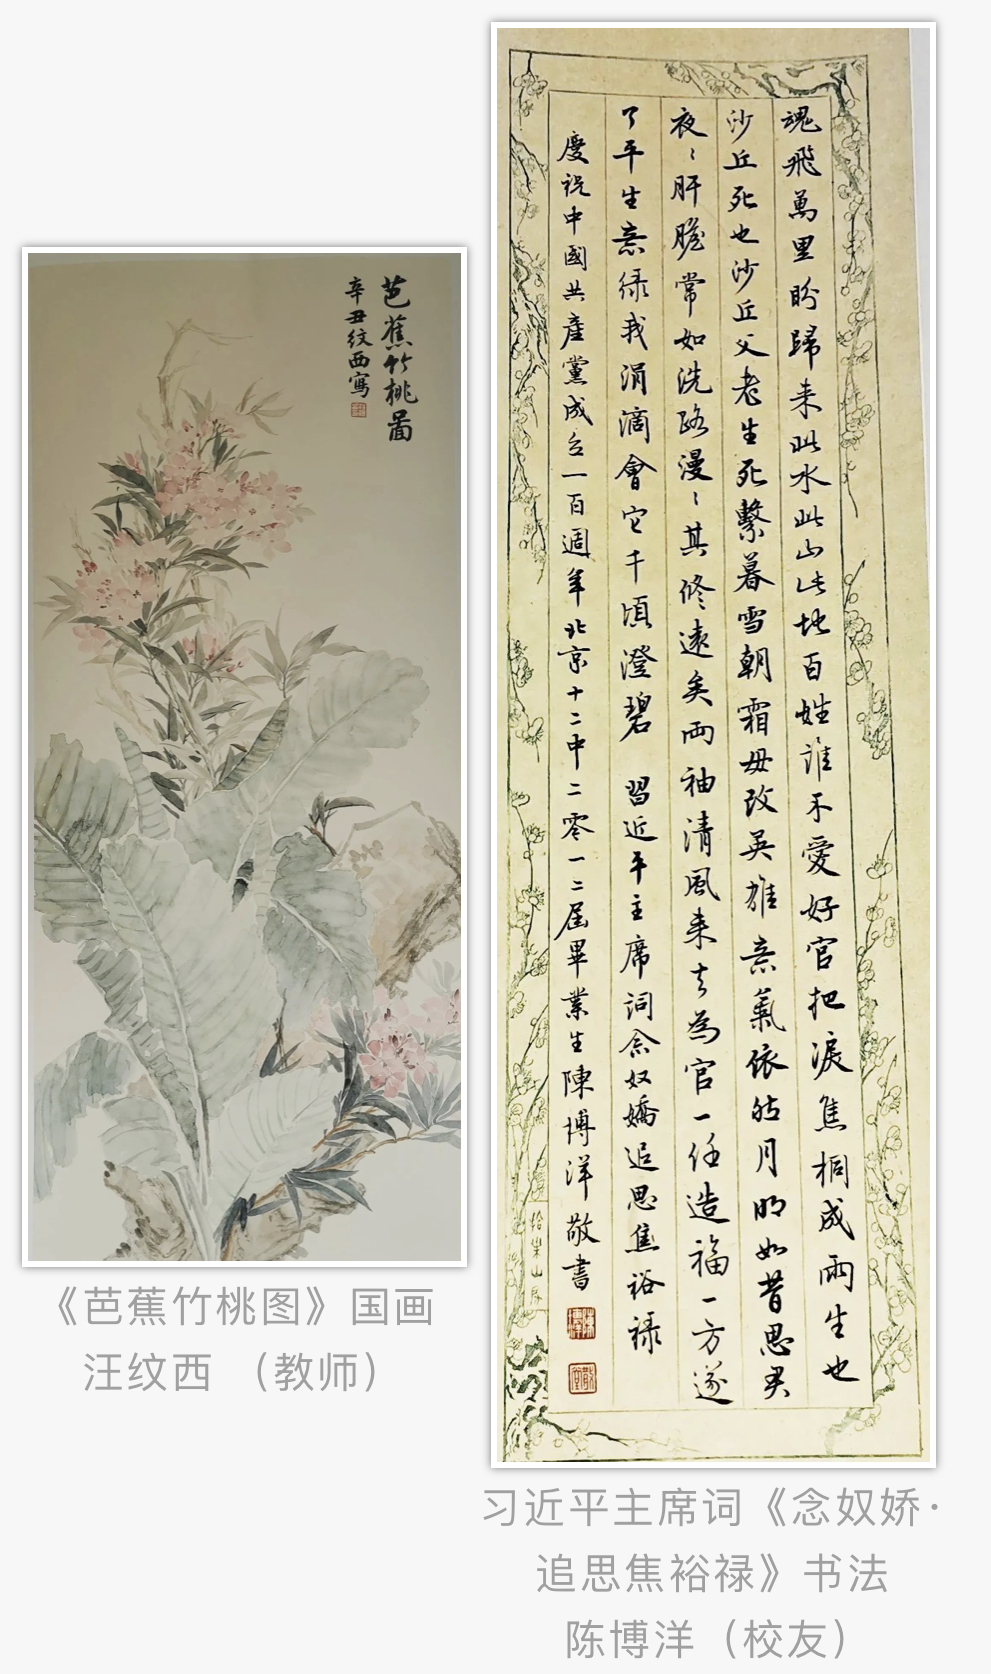 芭蕉竹桃啚
辛丑紋西寫
魂飛萬里盼歸来此水此山此地百姓誰不愛好官把淚焦桐成雨生也
沙丘死也沙丘父老生死繫暮雪朝霜毋改英雄意氣依然月明如昔思君
夜〻肝膽常如洗路漫〻其修遠矣兩袖清風来去為官一任造福一方遂
了平生意绿我涓滴會它千頃澄碧 習近平主席詞念奴嬌追思焦裕禄
慶祝中國共產黨成立一百週年北京十二中二零一二届畢業生陳博洋敬書
《芭蕉竹桃图》国画
汪纹西 （教师）
习近平主席词《念奴娇·
追思焦裕禄》书法
陈博洋（校友）